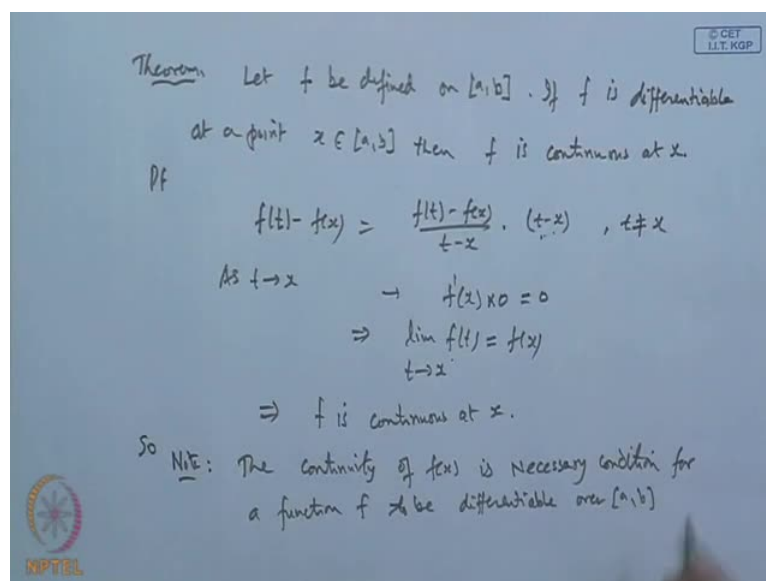 © CET
I.I.T. KGP
Theorem. Let f be defined on [a,b]. If f is differentiable
at a point x ∈ [a,b] then f is continuous at x.
Pf
f(t) - f(x) = \frac{f(t) - f(x)}{t - x} . (t-x) , t ≠ x
As t → x → f'(x) × 0 = 0
⇒ lim f(t) = f(x)
t→x
⇒ f is continuous at x.
So Note: The continuity of f(x) is Necessary condition for
a function f to be differentiable over [a,b]
NPTEL